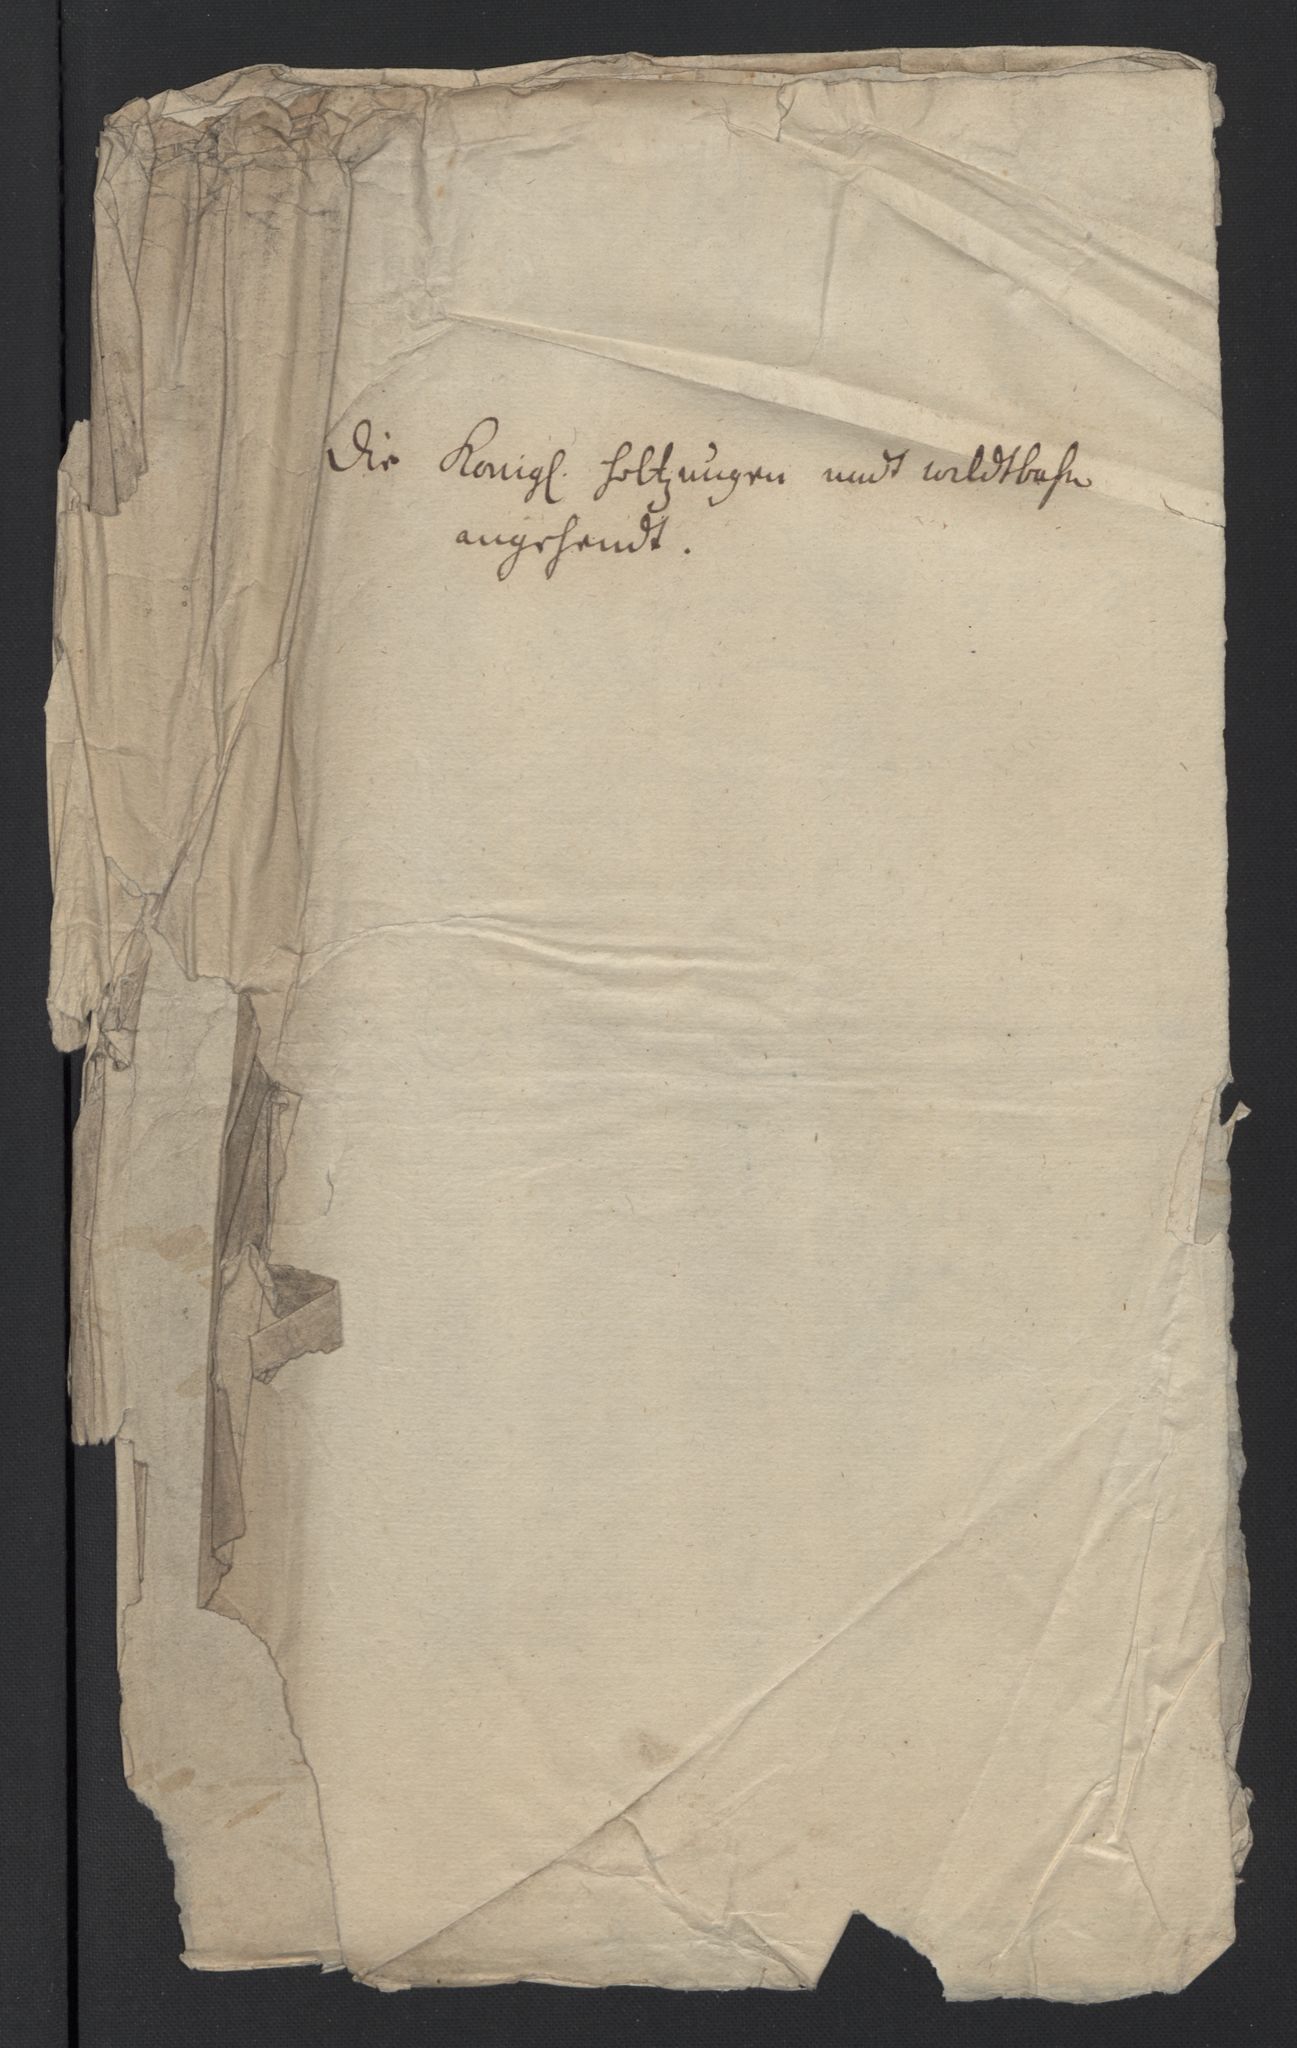 Die Königl. holtzungen undt wildtbahn
angehendt.